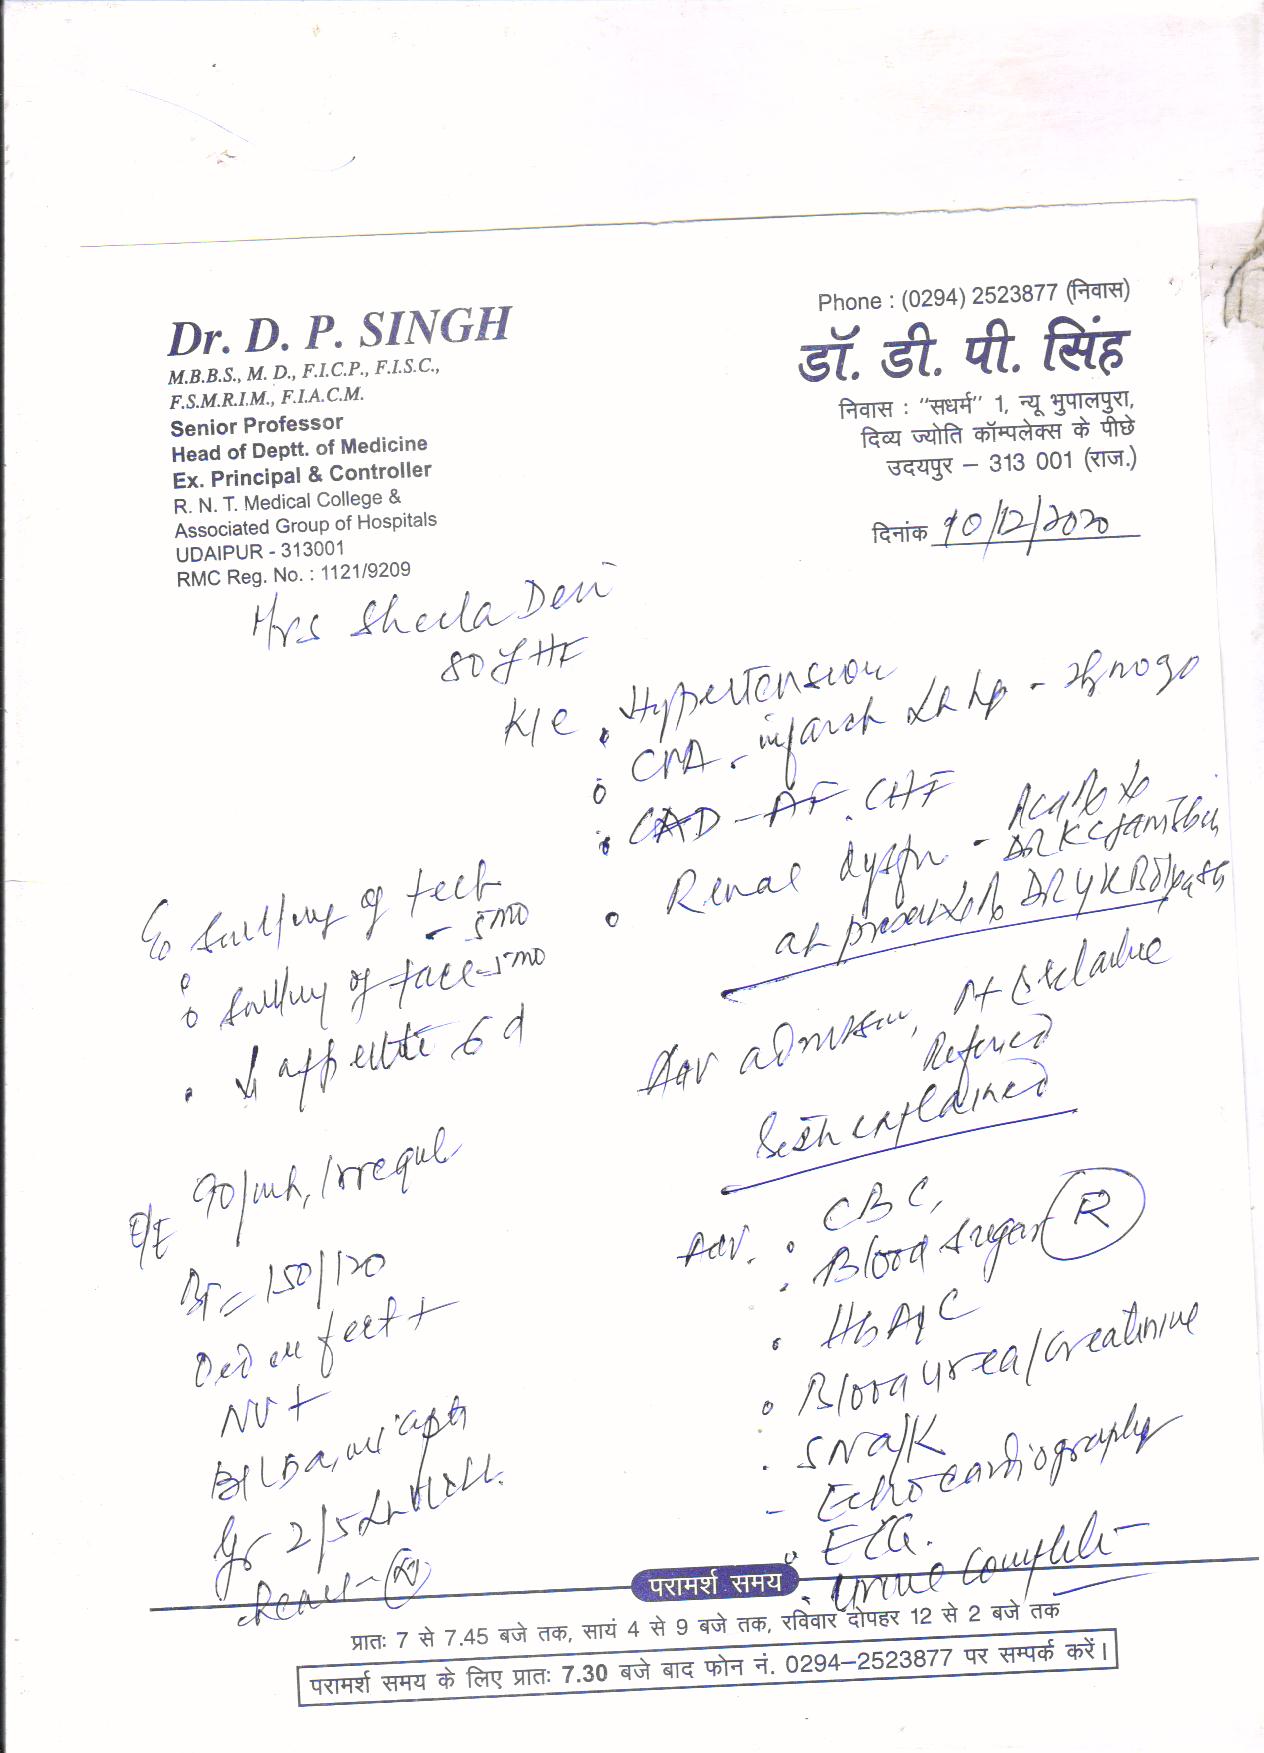 Phone : (0294) 2523877 (निवास)
Dr. D. P. SINGH
M.B.B.S., M. D., F.I.C.P., F.I.S.C.,
F.S.M.R.I.M., F.I.A.C.M.
Senior Professor
Head of Deptt. of Medicine
Ex. Principal & Controller
R. N. T. Medical College &
Associated Group of Hospitals
UDAIPUR - 313001
RMC Reg. No. : 1121/9209
डॉ. डी. पी. सिंह
निवास : “सधर्म” 1, न्यू भुपालपुरा,
दिव्य ज्योति कॉम्पलेक्स के पीछे
उदयपुर – 313 001 (राज.)
दिनांक 10/12/2020
Mrs Sheela Devi
80 y HF
K/c Hypertension
CVA - infarct
CAD - AF. CHF
Renal dysfn -
DR K C
at present DR Y K
swelling of feet
- 5mo
swelling of face - 5mo
↓ appetite 6d
Adv admission,
Referred
explained
O/E 90/min, Irregul
BP = 150/120
feet +
NV +
2/5
Adv. CBC,
Blood Sugar R
HbA1C
Blood urea/creatinine
S Na/K
- Echocardiography
ECG.
Urine Complete
परामर्श समय
प्रातः 7 से 7.45 बजे तक, सायं 4 से 9 बजे तक, रविवार दोपहर 12 से 2 बजे तक
परामर्श समय के लिए प्रातः 7.30 बजे बाद फोन नं. 0294–2523877 पर सम्पर्क करें।